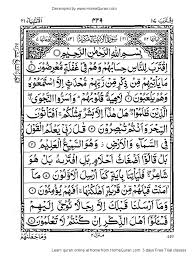 Developed by www.HomeQuran.com
اقترب ١٧
٣٣٩
الانبيآء ٢١
بِسْمِ اللّٰهِ الرَّحْمٰنِ الرَّحِيْمِ
اِقْتَرَبَ لِلنَّاسِ حِسَابُهُمْ وَهُمْ فِيْ غَفْلَةٍ مُّعْرِضُوْنَ
مَا يَاْتِيْهِمْ مِّنْ ذِكْرٍ مِّنْ رَّبِّهِمْ مُّحْدَثٍ اِلَّا اسْتَمَعُوْهُ وَهُمْ
يَلْعَبُوْنَ لَاهِيَةً قُلُوْبُهُمْ وَاَسَرُّوا النَّجْوَى الَّذِيْنَ
ظَلَمُوْا هَلْ هٰذَآ اِلَّا بَشَرٌ مِّثْلُكُمْ اَفَتَاْتُوْنَ السِّحْرَ
وَاَنْتُمْ تُبْصِرُوْنَ قٰلَ رَبِّيْ يَعْلَمُ الْقَوْلَ
فِي السَّمَآءِ وَالْاَرْضِ وَهُوَ السَّمِيْعُ الْعَلِيْمُ بَلْ قَالُوْٓا
اَضْغَاثُ اَحْلَامٍ بَلِ افْتَرٰىهُ بَلْ هُوَ شَاعِرٌ فَلْيَاْتِنَا بِاٰيَةٍ
كَمَآ اُرْسِلَ الْاَوَّلُوْنَ مَآ اٰمَنَتْ قَبْلَهُمْ مِّنْ قَرْيَةٍ اَهْلَكْنٰهَا
اَفَهُمْ يُؤْمِنُوْنَ وَمَآ اَرْسَلْنَا قَبْلَكَ اِلَّا رِجَالًا نُّوْحِيْٓ اِلَيْهِمْ
فَسْئَلُوْٓا اَهْلَ الذِّكْرِ اِنْ كُنْتُمْ لَا تَعْلَمُوْنَ
وَمَا جَعَلْنٰهُمْ
Learn quran online at home from HomeQuran.com 3 days Free Trial classes